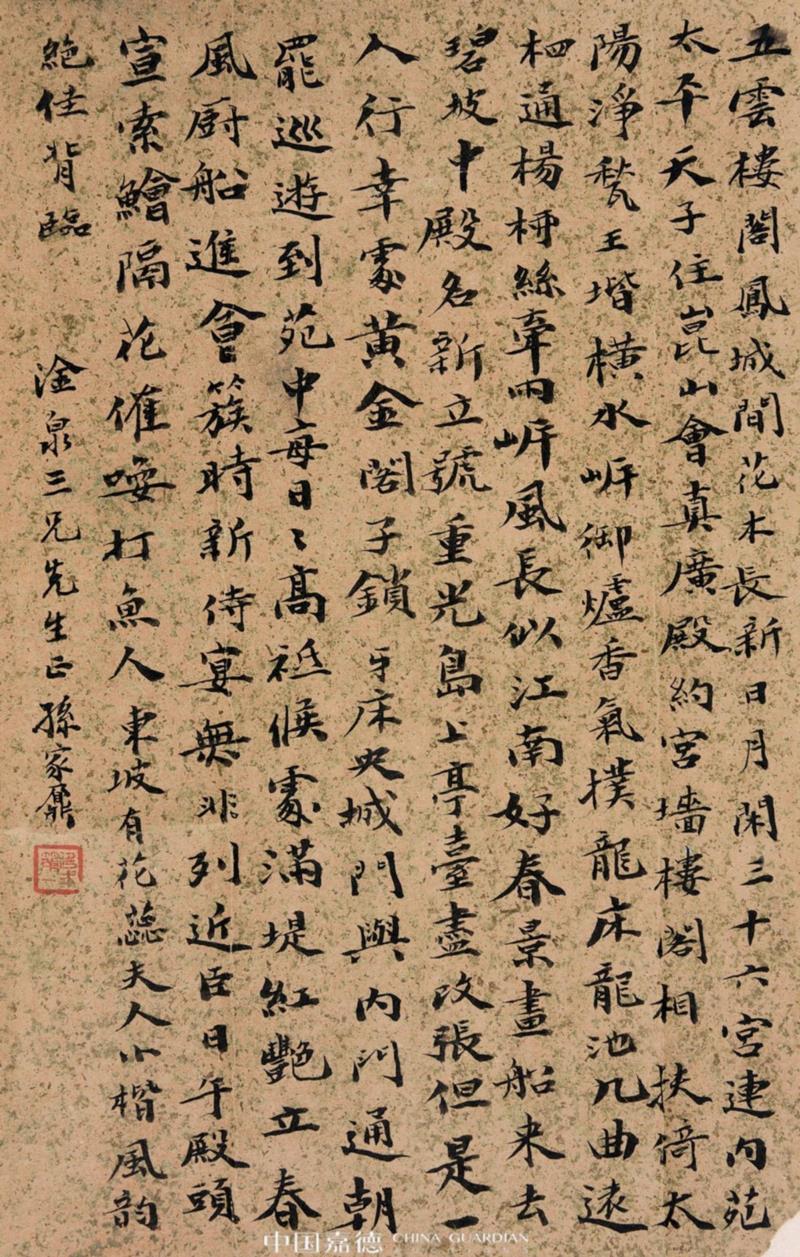 五雲樓閣鳳城間花木長新日月閑三十六宮連內苑
太平天子住崑山會真廣殿約宮墻樓閣相扶倚太
陽淨甃玉堦橫水岸御爐香氣撲龍床龍池九曲遠
相通楊柳絲牽兩岸風長似江南好春景畫船來去
碧坡中殿名新立號重光島上亭臺盡改張但是一
人行幸處黃金閣子鎖牙床夾城門與內門通朝
罷巡遊到苑中每日日高祗候處滿堤紅艷立春
風廚船進食簇時新侍宴無非列近臣日午殿頭
宣索鱠隔花催喚打魚人東坡有花蕊夫人小楷風韵
絕佳背臨
淦泉三兄先生正孫家鼐
中国嘉德 CHINA GUARDIAN